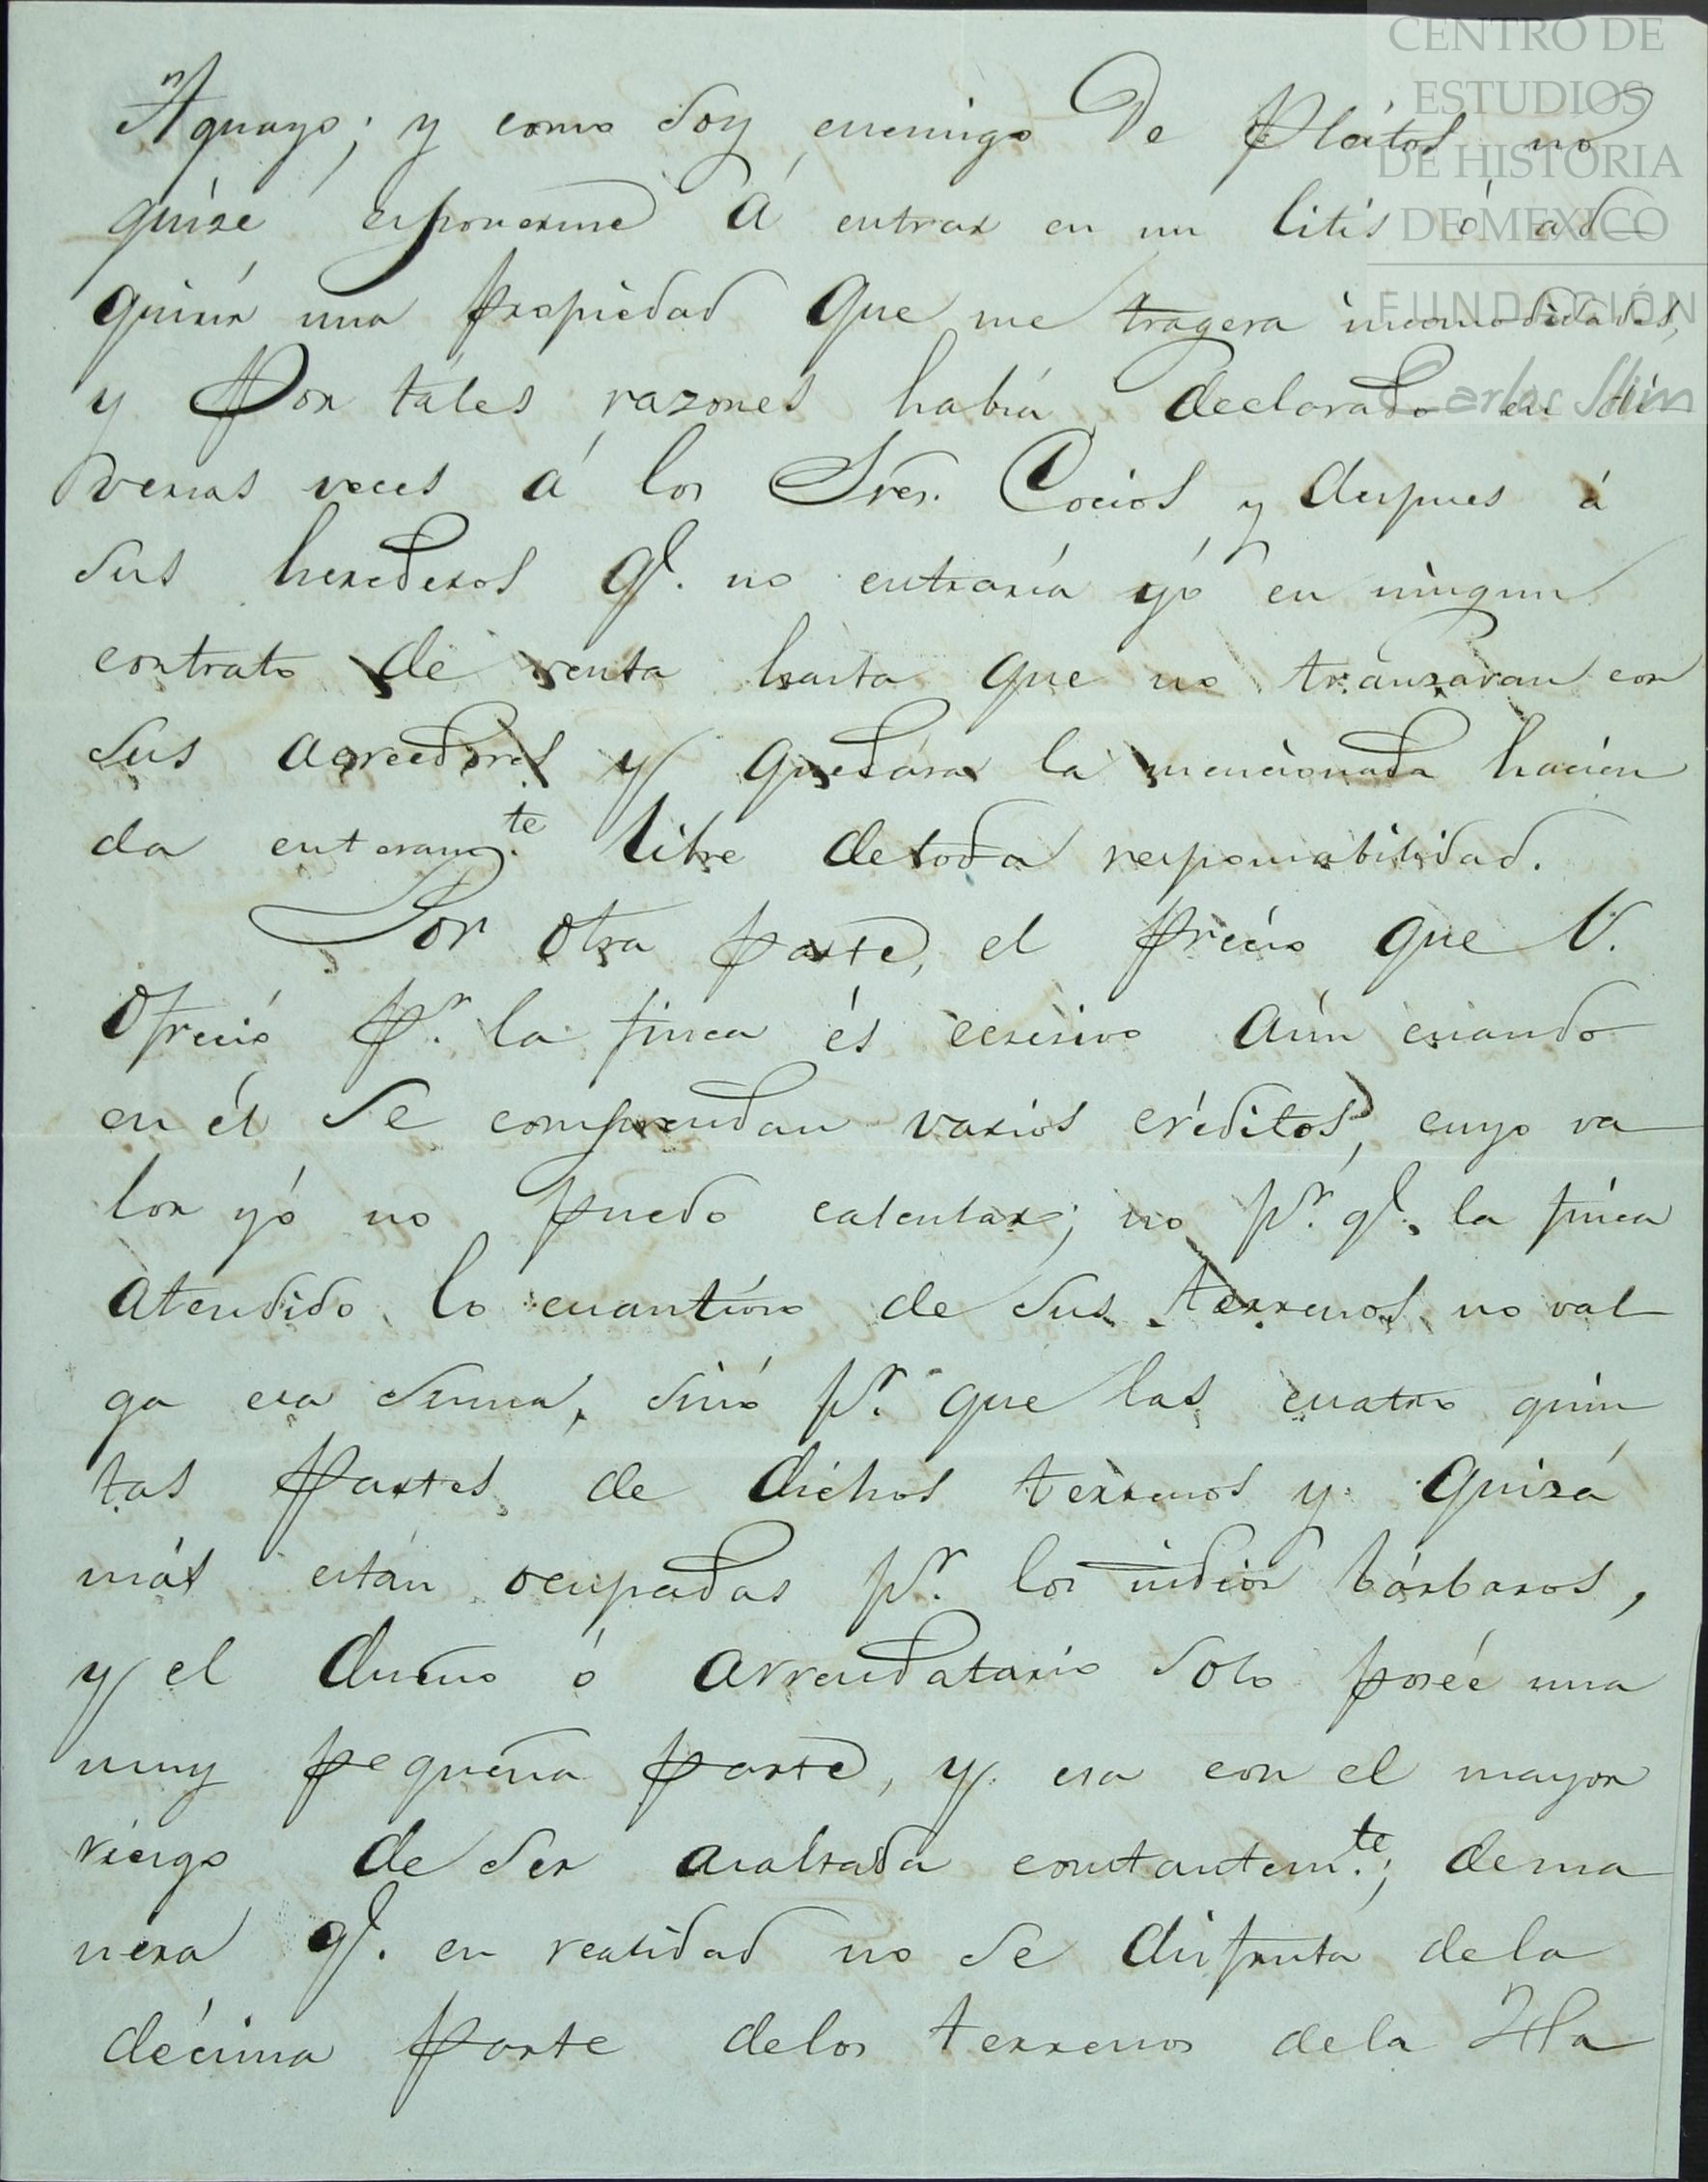 Aguayo; y como soy enemigo de Pleitos no
quise esponerme á entrar en un litis ó ad
quirir una propiedad que me tragera incomodidades,
y Por táles razones había declarado en di
versas veces á los Sres. Cocios y despues á
sus herederos ql. no entraría yó en ningun
contrato de renta hasta que no tranzaran con
sus acreedores y quedára la mencionada hacien
da enteramte. libre detoda responsabilidad.
Por otra parte, el précio que V.
Ofreció pr. la finca és ecsesivo aún cuando
en él se comprendan varios créditos, cuyo va
lor yó no puedo calcular; no pr. ql. la finca
atendido lo cuantioso de sus terrenos no val
ga esa suma, sinó pr. que las cuatro quin
tas partes de dichos terrenos y quizá
más están ocupadas pr. los indios bárbaros,
y el dueño ó arrendatario solo poséé una
muy pequeña parte, y esa con el mayor
riesgo de ser asaltada constantemte.; dema
nera ql. en realidad no se disfruta dela
décima parte delos terrenos dela Ha
CENTRO DE
ESTUDIOS
DE HISTORIA
DE MEXICO
FUNDACIÓN
Carlos Slim